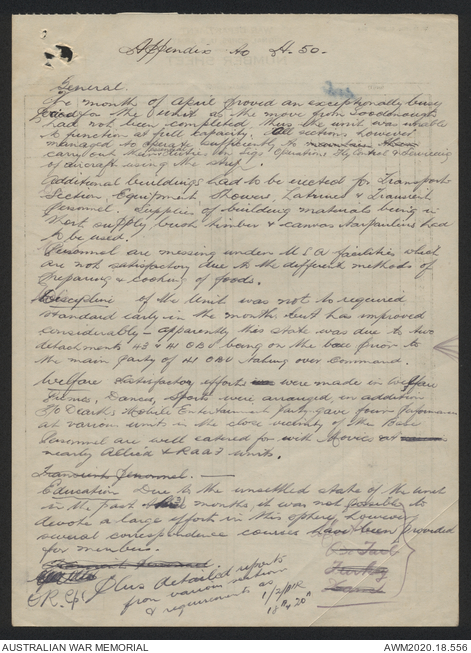 Appendix to A.50.
General.
The month of April proved an exceptionally busy
period for the Unit as the move from Goodenough
had not been completed, thus the unit was unable
to function at full capacity. All sections however
managed to operate sufficiently to
carry out their duties, Sigs, Operation, Fly Control & Servicing
of aircraft using the strip.
Additional buildings had to be erected for Transport
Section, Equipment Stores, Latrines & Transient
Personnel. Supplies of building materials being in
short supply bush timber & canvas tarpaulins had
to be used.
Personnel are messing under USA facilities which
are not satisfactory due to the different methods of
preparing & cooking of foods.
Discipline of the Unit was not to required
standard early in the month but has improved
considerably - apparently this state was due to two
detachments 43 & 41 OBU being on the base prior to
the main party of 41 OBU taking over Command.
Welfare Satisfactory efforts were made in Welfare
Films, Dances, Sports were arranged, in addition
Mobile Entertainment Party gave four performances
at various units in the close vicinity of the Base
Personnel are well catered for with Movies at
nearby Allied & RAAF units.
Transient Personnel.
Education Due to the unsettled state of the unit
in the past months it was not possible to
devote a large effort in this sphere, however
several correspondence courses have been provided
for members.
Plus detailed reports
from various sections
& requirements as
AUSTRALIAN WAR MEMORIAL
AWM2020.18.556